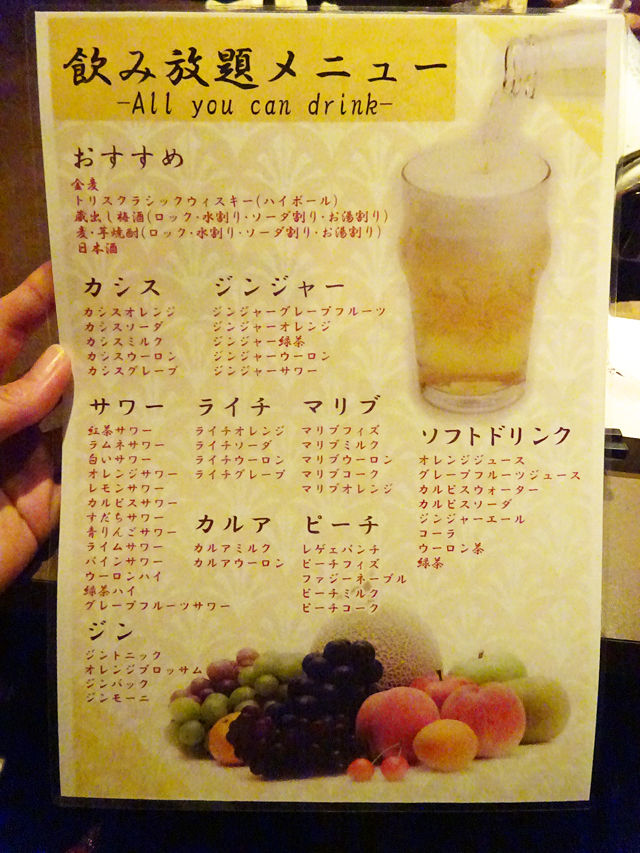 飲み放題メニュー
-All you can drink-
おすすめ
金麦
トリスクラシックウィスキー(ハイボール)
蔵出し梅酒(ロック・水割り・ソーダ割り・お湯割り)
麦・芋焼酎(ロック・水割り・ソーダ割り・お湯割り)
日本酒
カシス
カシスオレンジ
カシスソーダ
カシスミルク
カシスウーロン
カシスグレープ
ジンジャー
ジンジャーグレープフルーツ
ジンジャーオレンジ
ジンジャー緑茶
ジンジャーウーロン
ジンジャーサワー
サワー
紅茶サワー
ラムネサワー
白いサワー
オレンジサワー
レモンサワー
カルピスサワー
すだちサワー
青りんごサワー
ライムサワー
パインサワー
ウーロンハイ
緑茶ハイ
グレープフルーツサワー
ライチ
ライチオレンジ
ライチソーダ
ライチウーロン
ライチグレープ
マリブ
マリブフィズ
マリブミルク
マリブウーロン
マリブコーク
マリブオレンジ
ソフトドリンク
オレンジジュース
グレープフルーツジュース
カルピスウォーター
カルピスソーダ
ジンジャーエール
コーラ
ウーロン茶
緑茶
カルア
カルアミルク
カルアウーロン
ピーチ
レゲェパンチ
ピーチフィズ
ファジーネーブル
ピーチミルク
ピーチコーク
ジン
ジントニック
オレンジブロッサム
ジンバック
ジンモーニ